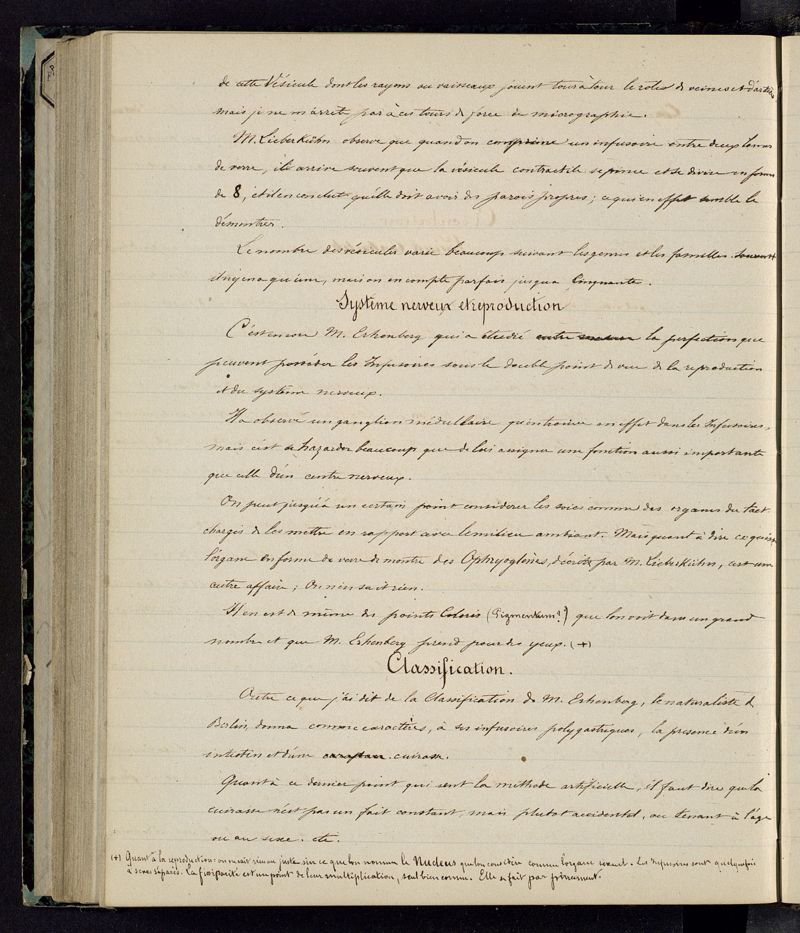 de cette Vésicule dont les rayons ou vaisseaux jouent tour à tour le rôles de veines et d'artères
mais je ne m'arrête pas à ces tours de force de micrographie.
M. Lieberkühn observe que quand on comprime un infusoire entre deux lames
de verre, il arrive souvent que la vésicule contractile se pince et se divise en forme
de 8, et il en conclut qu'elle doit avoir des parois propres; ce qui en effet semble le
démontrer.
Le nombre des vésicules varie beaucoup suivant les genres et les familles. souvent
il n'y en a qu'une, mais on en compte parfois jusqu'a Cinquante.
Système nerveux et reproduction
C'est encore M. Erhenberg qui a étudié la perfection que
peuvent posséder les Infusoires sous le double point de vue de la reproduction
et du système nerveux.
Il a observé un ganglion médullaire qu'on trouve en effet dans les Infusoires,
mais c'est se hazarder beaucoup que de lui assigner une fonction aussi importante
que celle d'un centre nerveux.
On peut jusqu'à un certain point considérer les soies comme des organes du tact
chargés de les mettre en rapport avec le milieu ambiant. Mais quant à dire ce qu'est
l'organe en forme de verre de montre des Ophryoglènes, décrit par M. Lieberkühn, c'est une
autre affaire; On n'en sait rien.
Il en est de même des points Colorés (Pigmentum?) que l'on voit dans un grand
nombre et que M. Erhenberg prend pour des yeux. (+)
Classification.
Outre ce que j'ai dit de la Classification de M. Erhenberg, le naturaliste de
Berlin, donna comme caractères, à ses infusoires polygastriques, la présence d'un
intestin et d'une cuirasse.
Quant à ce dernier point qui sent la méthode artificielle, il faut dire que la
cuirasse n'est pas un fait constant, mais plutot accidentel, ou tenant à l'age
ou au sexe. etc.
(+) Quant à la reproduction on ne sait rien au juste sur ce que l'on nomme le Nucleus qu'on considère comme l'organe sexuel. Les Infusoires sont quelquefois
à sexes séparés. La fissiparité est un point de leur multiplication, seul bien connu. Elle se fait par